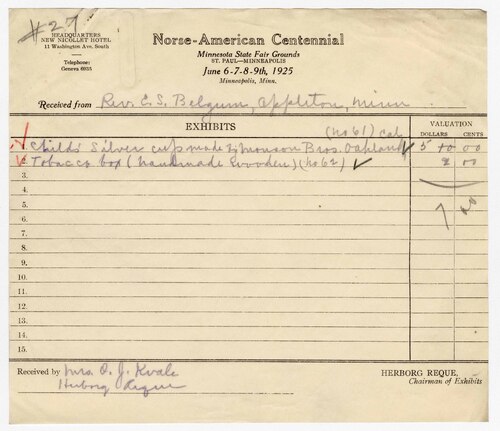 #27
HEADQUARTERS
NEW NICOLLET HOTEL
11 Washington Ave. South
Telephone:
Geneva 6855
Norse-American Centennial
Minnesota State Fair Grounds
ST. PAUL—MINNEAPOLIS
June 6-7-8-9th, 1925
Minneapolis, Minn.
Received from Rev. E. S. Belgum, Appleton, Minn.
EXHIBITS
VALUATION
DOLLARS CENTS
(no 61) Cal
Child's Silver cup made by Monson Bros. Oakland 5 00
Tobacco box (handmade wooden) (no 62) 2 00
3.
7 00
4.
5.
6.
7.
8.
9.
10.
11.
12.
13.
14.
15.
Received by Mrs. O. J. Kvale
Herborg Reque
HERBORG REQUE,
Chairman of Exhibits